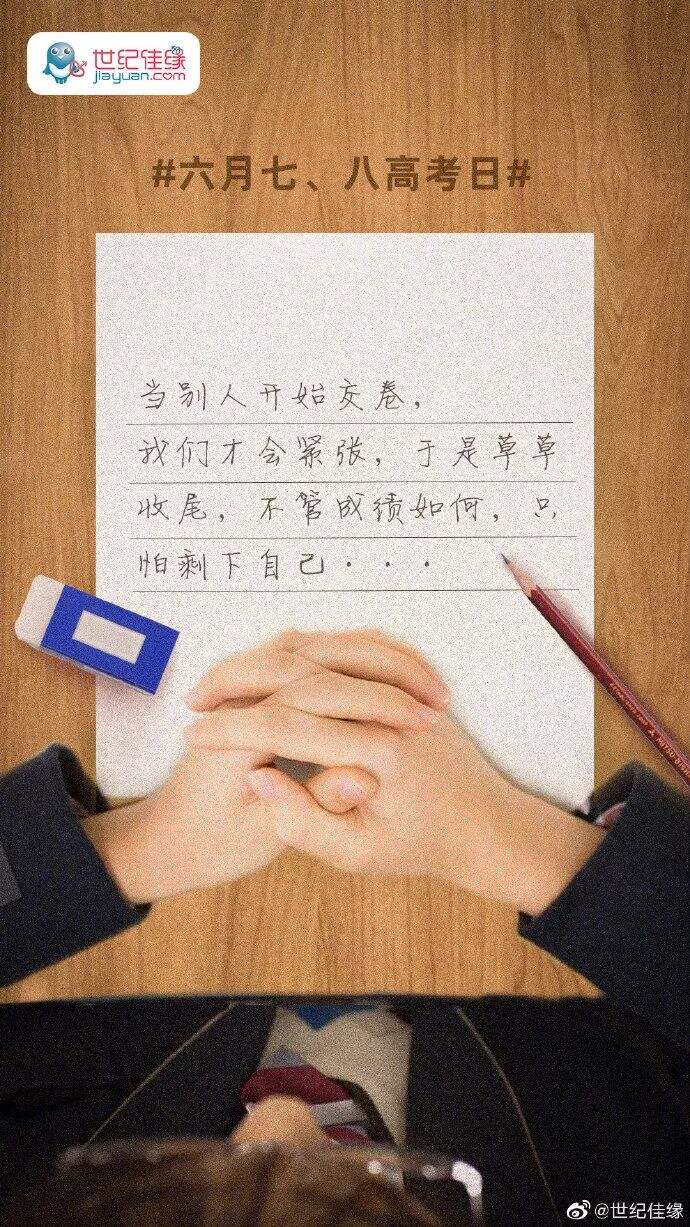 世纪佳缘
jiayuan.com
#六月七、八高考日#
当别人开始交卷，
我们才会紧张，于是草草
收尾，不管成绩如何，只
怕剩下自己···
@世纪佳缘